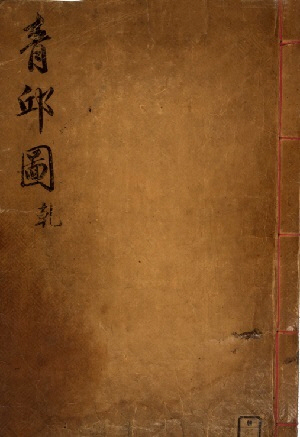 青邱圖 乾